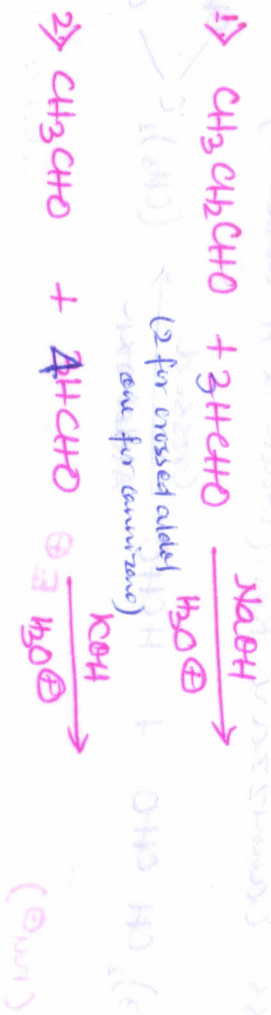 1⟩ CH3CH2CHO + 3HCHO NaOH
H3O⊕
(2 for crossed aldol
one for cannizaro)
2⟩ CH3CHO + 4HCHO KOH
H3O⊕